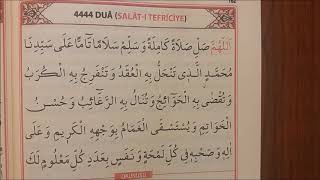 162
4444 DUÂ (SALÂT-I TEFRİCİYE)
اَللّٰهُمَّ صَلِّ صَلَاةً كَامِلَةً وَسَلِّمْ سَلَامًا تَآمًّا عَلٰى سَيِّدِنَا
مُحَمَّدٍ الَّذ۪ي تَنْحَلُّ بِهِ الْعُقَدُ وَتَنْفَرِجُ بِهِ الْكُرَبُ
وَتُقْضٰى بِهِ الْحَوَائِجُ وَتُنَالُ بِهِ الرَّغَائِبُ وَحُسْنُ
الْخَوَاتِمِ وَيُسْتَسْقَى الْغَمَامُ بِوَجْهِهِ الْكَر۪يمِ وَعَلٰى
اٰلِه۪ وَصَحْبِه۪ ف۪ي كُلِّ لَمْحَةٍ وَنَفَسٍ بِعَدَدِ كُلِّ مَعْلُومٍ لَكَ